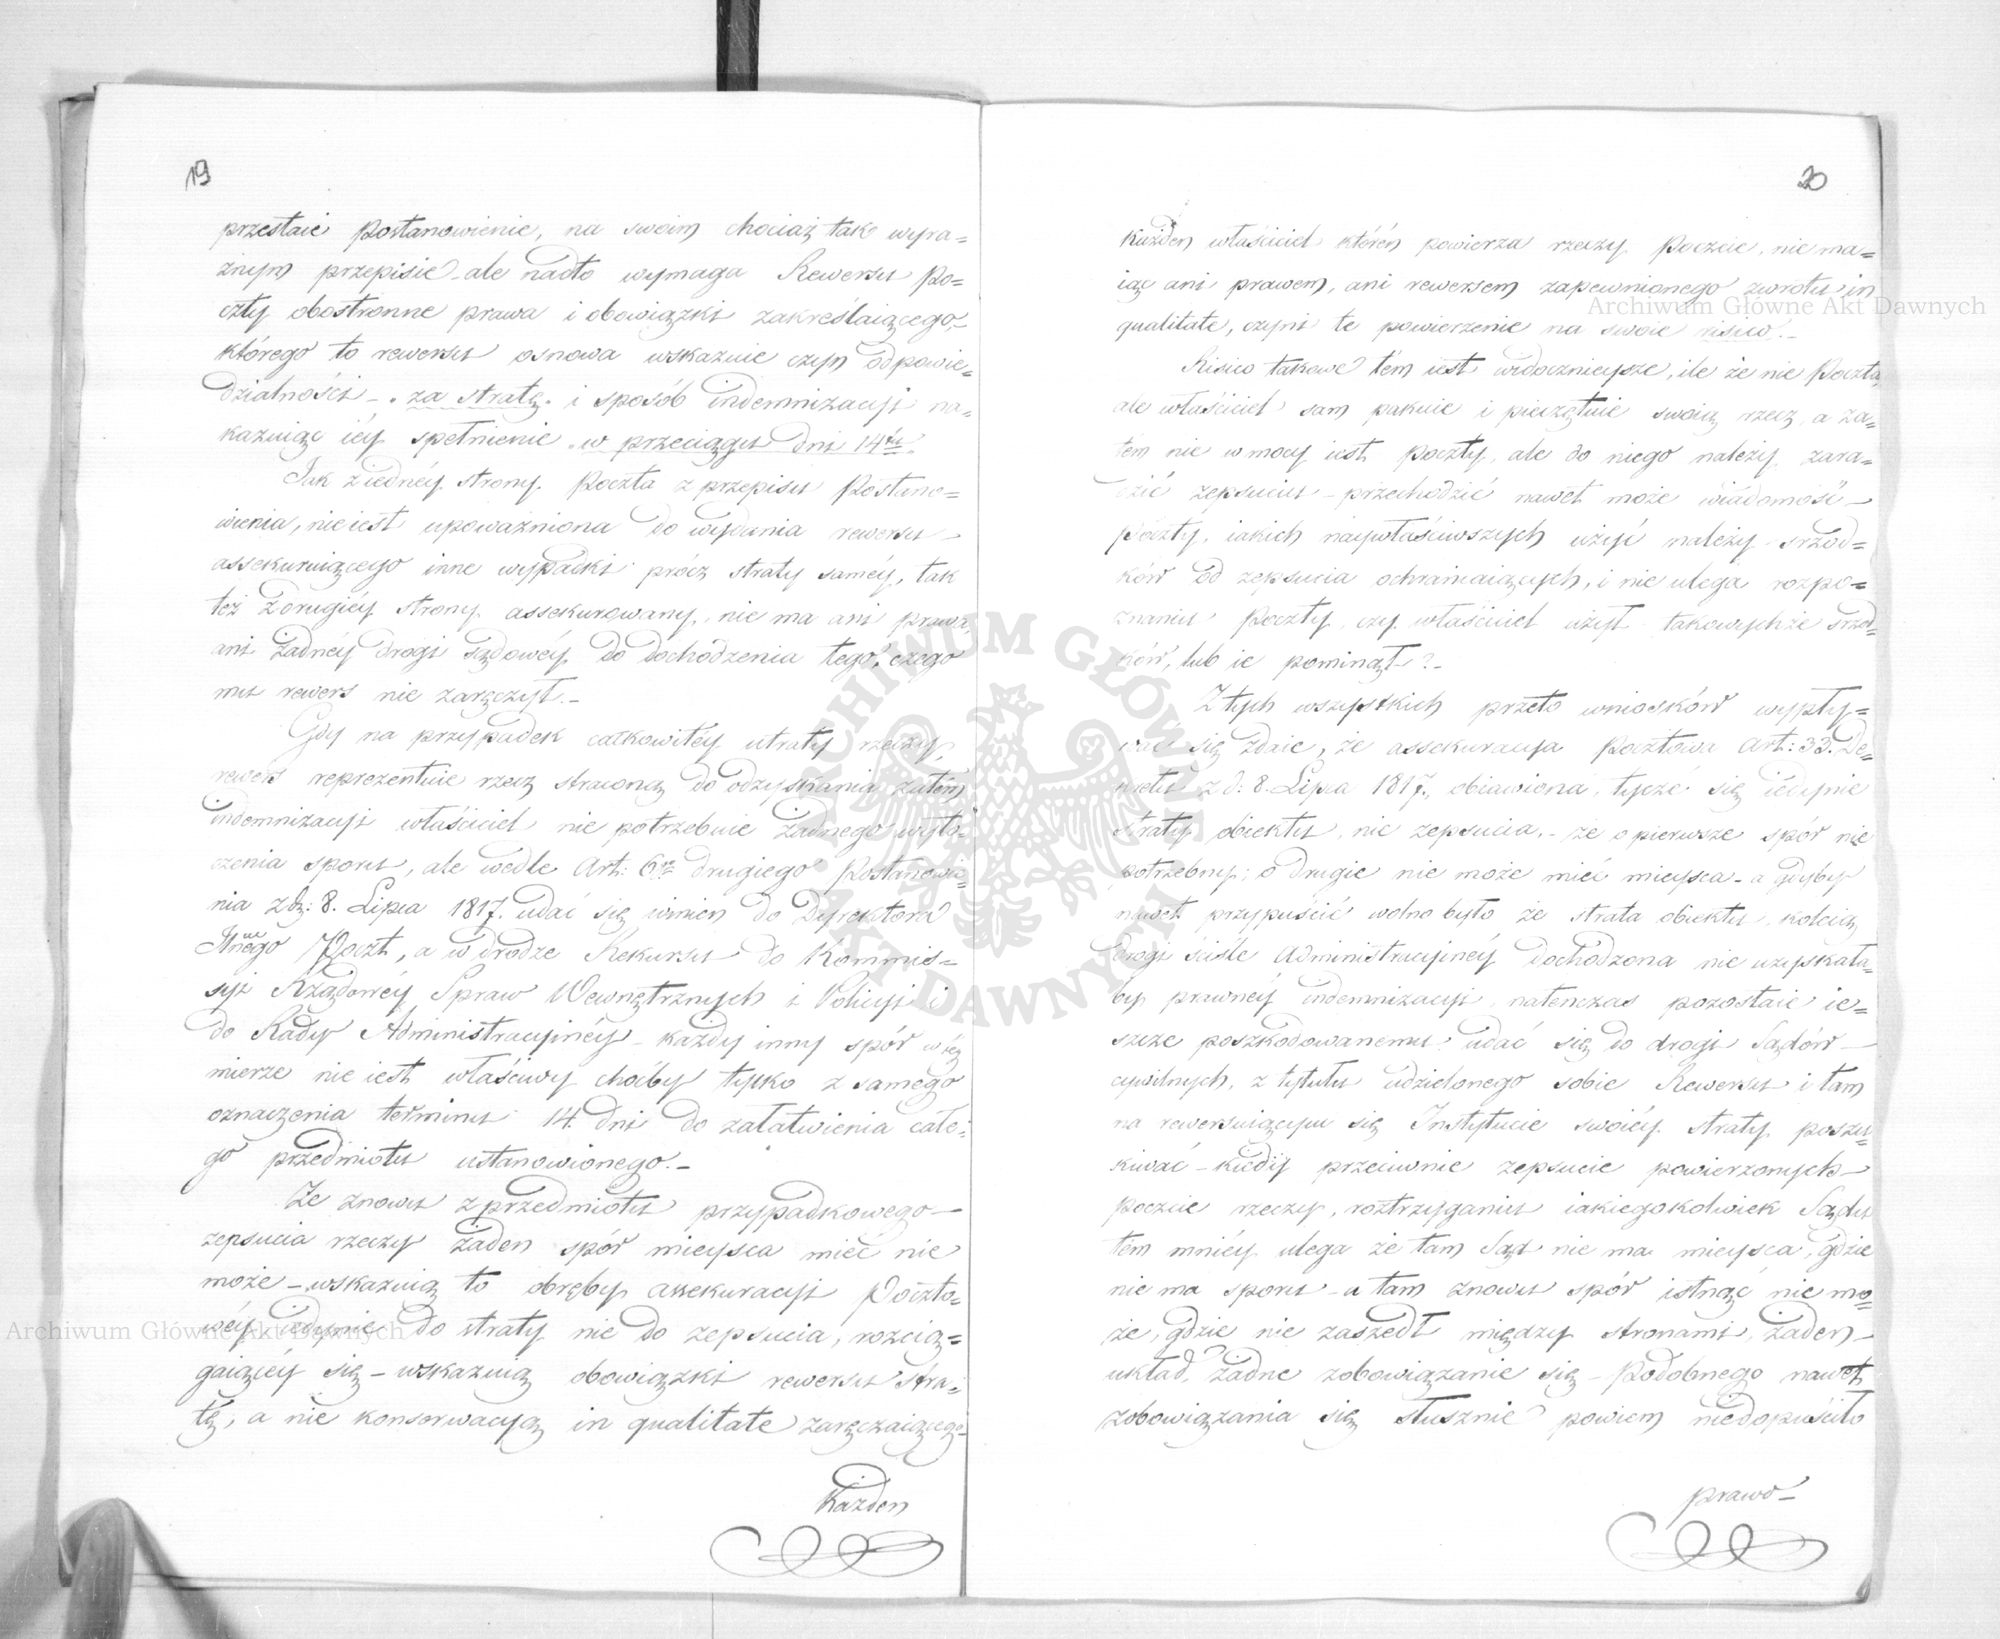 19
przestaie Postanowienie, na swoim chociaż tak wyra=
źnym przepisie – ale nadto wymaga Rewersu Po=
czty obostronne prawa i obowiązki zakreślaiącego –
którego to rewersu osnowa wskazuie czyn odpowie=
dzialności – „za stratę„ i sposób indemnizacyi na=
kazuiąc iéy spełnienie „w przeciągu dni 14tu„
Jak z iednéy strony Poczta z przepisu Postano=
wienia, nie iest upoważniona do wydania rewersu –
assekuruiącego inne wypadki prócz straty saméy, tak
też z drugiéy strony assekurowany, nie ma ani prawa
ani żadnéy drogi sądowéy do dochodzenia tego, czego
mu rewers nie zaręczył. –
Gdy na przypadek całkowitéy utraty rzeczy,
rewers reprezentuie rzecz straconą do odzyskania zatém
indemnizacyi właściciel nie potrzebuie żadnego wyto=
czenia sporu, ale wedle Art: 6go drugiego Postanowie=
nia z d: 8. Lipca 1817. udać się winien do Dyrektora
Jlnego Poczt, a w drodze Rekursu do Kommis=
syi Rządowéy Spraw Wewnętrznych i Policyi i
do Rady Administracyinéy – każdy inny spór w téy
mierze nie iest właściwy choćby tylko z samego
oznaczenia terminu 14. dni do załatwienia całe=
go przedmiotu ustanowionego. –
Że znowu z przedmiotu przypadkowego –
zepsucia rzeczy żaden spór mieysca mieć nie
może – wskazuią to obręby assekuracyi Poczto=
wéy iedynie do straty nie do zepsucia, rozcią=
gaiącéy się – wskazuią obowiązki rewersu stra=
tę, a nie konserwacyą in qualitate zaręczaiącego –
Każden
20
każden właściciel którén powierza rzeczy Poczcie, nie ma=
iąc ani prawem, ani rewersem zapewnionego zwrotu in
qualitate, czyni te powierzenie na swoie risico. –
Risico takowe tém iest widocznieysze, ile że nie Poczta,
ale właściciel sam pakuie i pieczętuie swoią rzecz, a za=
tém nie w mocy iest Poczty, ale do niego należy zara=
dzić zepsuciu – przechodzić nawet może wiadomość –
Poczty, iakich naywłaściwszych użyć należy srzod=
ków od zepsucia ochraniaiących, i nie ulega rozpo=
znaniu Poczty, czy właściciel użył takowychże srzod=
ków, lub ie pominął? –
Z tych wszystkich przeto wniosków wypły=
wać się zdaie, że assekuracya Pocztowa Art: 33. De=
kretu z d: 8. Lipca 1817. obiawiona, tycze się iedynie
straty obiektu, nie zepsucia, – że o pierwsze spór nie
potrzebny; o drugie nie może mieć mieysca – a gdyby
nawet przypuścić wolno było że strata obiektu, koleią
drogi ściśle Administracyinéy dochodzona nie uzyskała=
by prawnéy indemnizacyi, natenczas pozostaie ie=
szcze poszkodowanemu udać się do drogi Sądów –
cywilnych, z tytułu udzielonego sobie Rewersu i tam
na rewersuiącym się Instytucie swoiéy straty poszu=
kiwać – kiedy przeciwnie zepsucie powierzonych –
poczcie rzeczy, roztrzyganiu iakiegokolwiek Sądu
tém mniéy ulega że tam Sąd nie ma mieysca, gdzie
nie ma sporu – a tam znowu spór istnąć nie mo=
że, gdzie nie zaszedł między stronami żaden –
układ, żadne zobowiązanie się – Podobnego nawet
zobowiązania się słusznie powiem niedopuściło
prawo –
Archiwum Główne Akt Dawnych
Archiwum Główne Akt Dawnych
ARCHIWUM GŁÓWNE AKT DAWNYCH